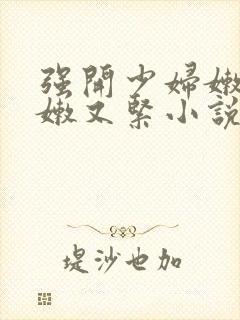 强開少婦嫩
嫩又緊小說
堤沙也加